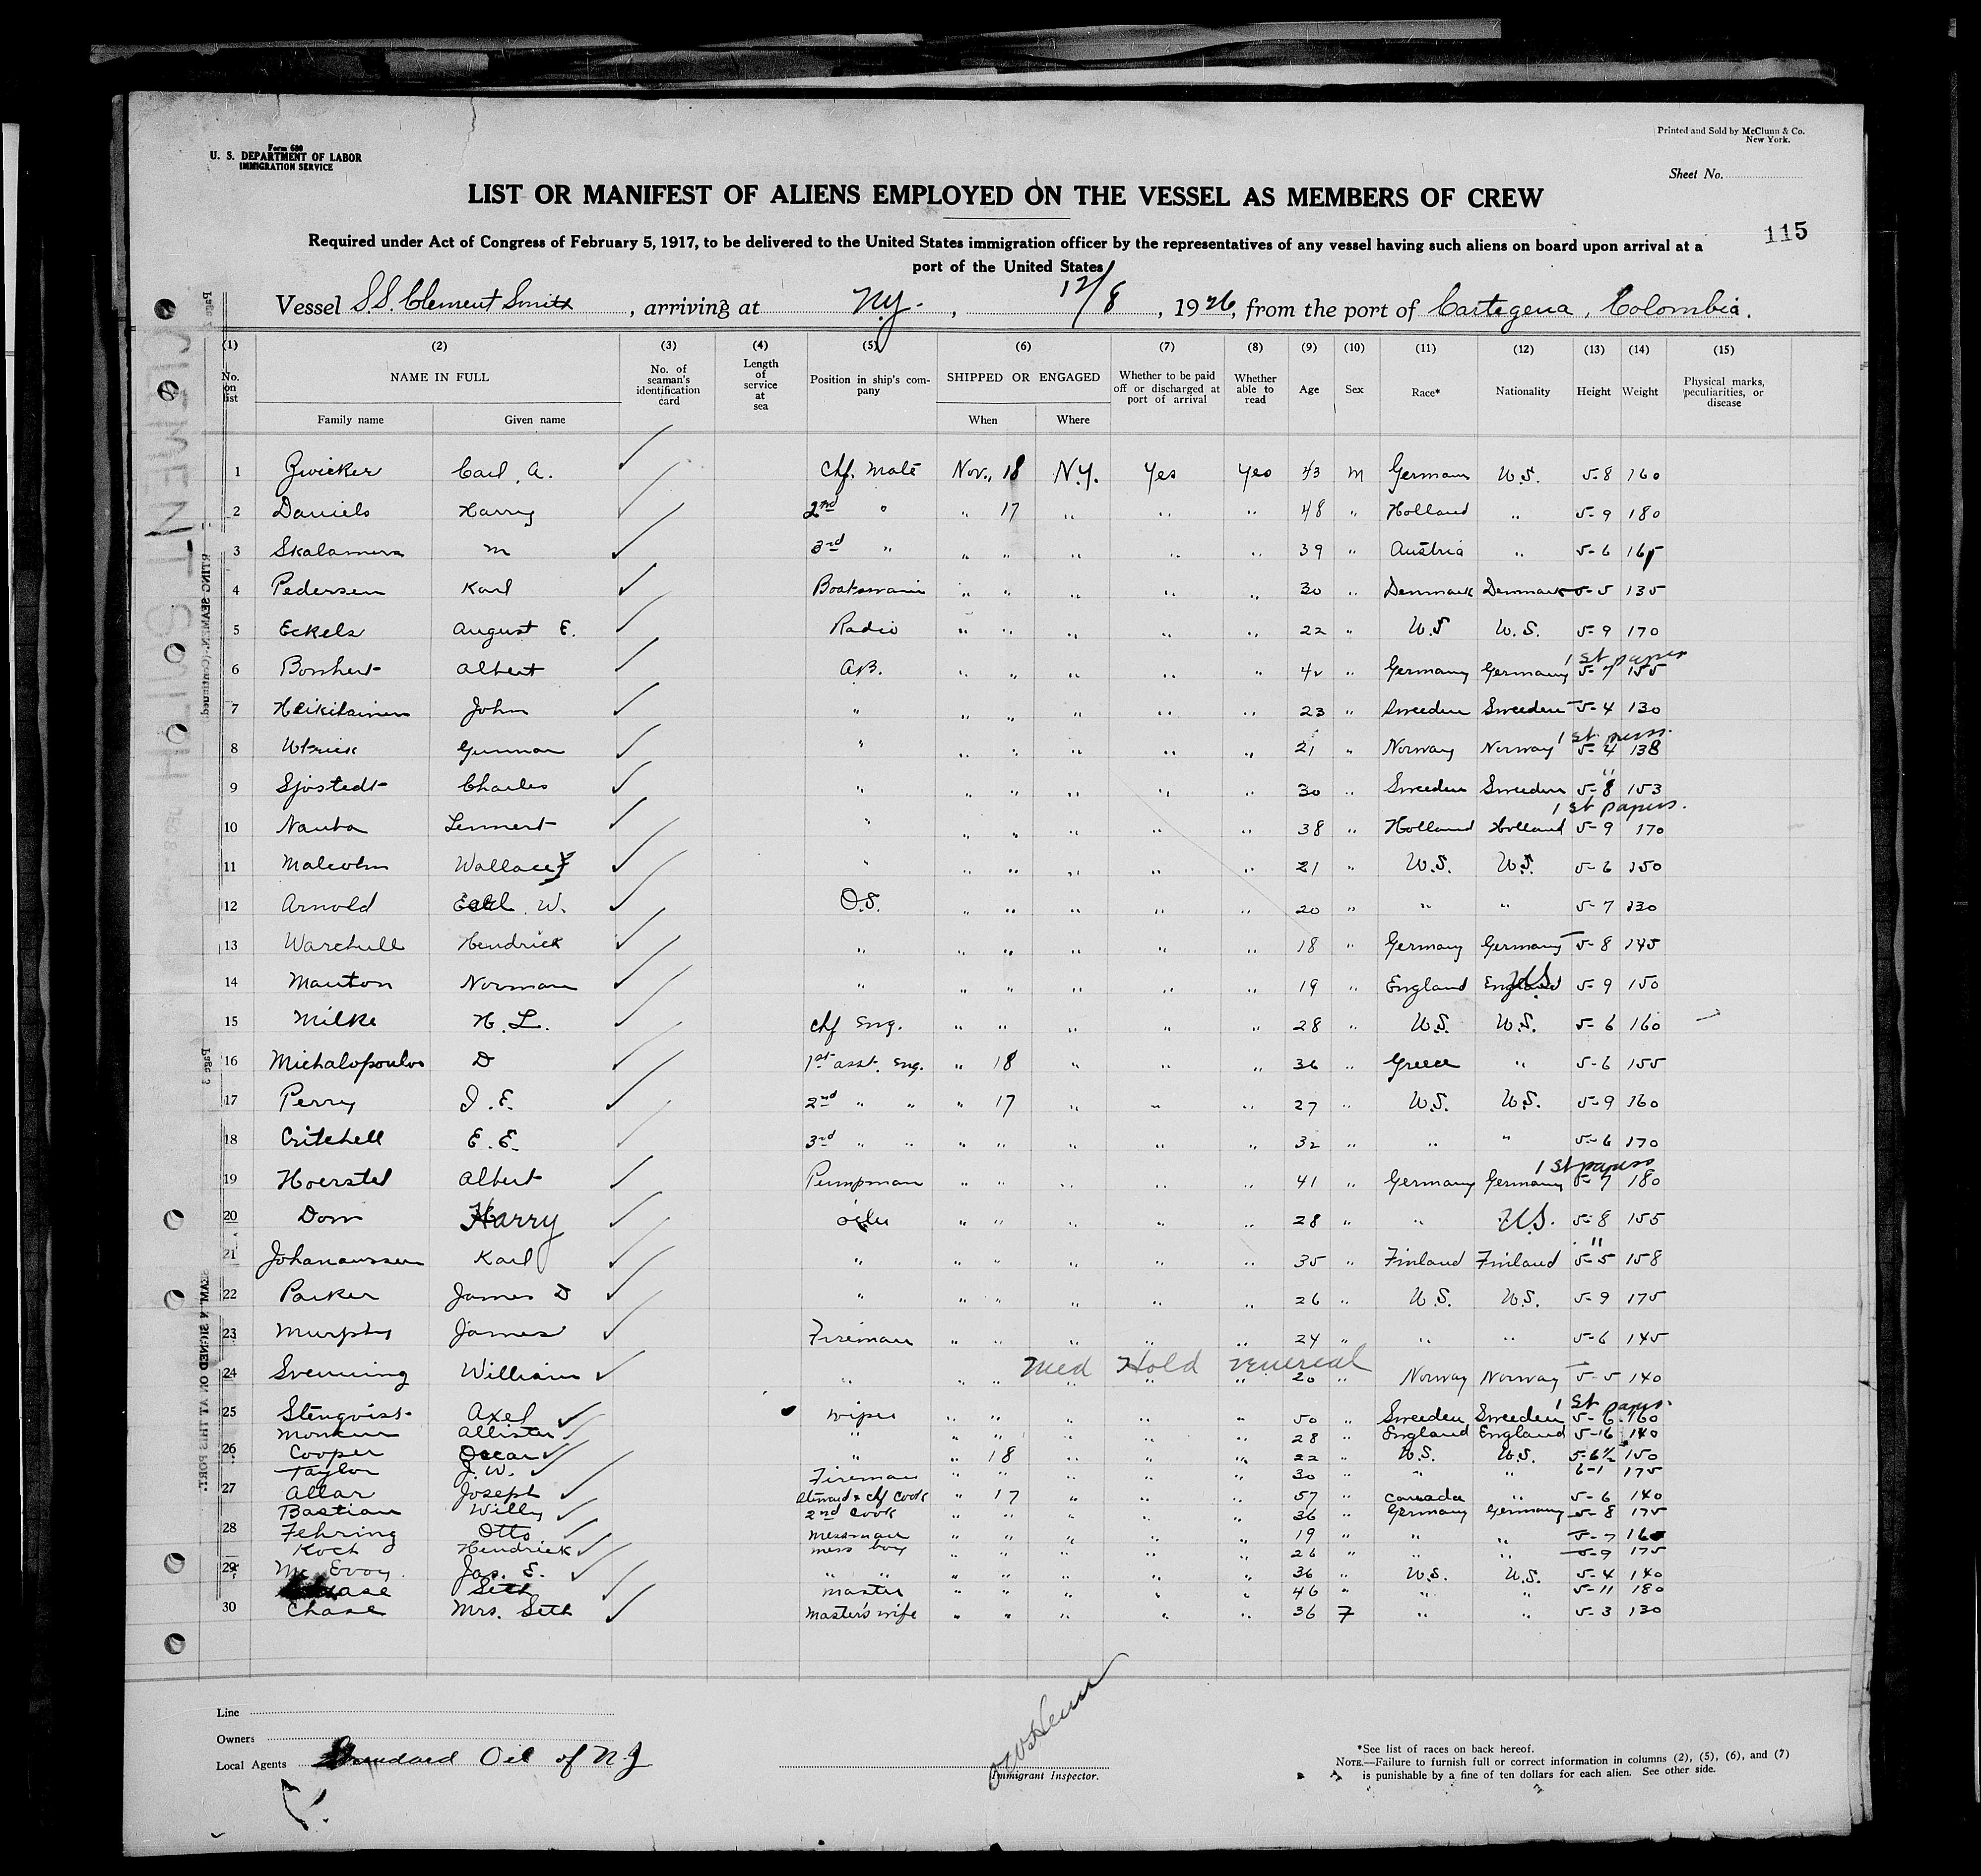 Form 680
U. S. DEPARTMENT OF LABOR
IMMIGRATION SERVICE
Printed and Sold by McClunn & Co.
New York.
Sheet No.
LIST OR MANIFEST OF ALIENS EMPLOYED ON THE VESSEL AS MEMBERS OF CREW
115
Required under Act of Congress of February 5, 1917, to be delivered to the United States immigration officer by the representatives of any vessel having such aliens on board upon arrival at a
port of the United States
Vessel S.S. Clement Smith, arriving at N.Y., 12/8, 1926, from the port of Cartegena, Colombia.
(1) (2) (3) (4) (5) (6) (7) (8) (9) (10) (11) (12) (13) (14) (15)
No. on list NAME IN FULL No. of seaman's identification card Length of service at sea Position in ship's company SHIPPED OR ENGAGED Whether to be paid off or discharged at port of arrival Whether able to read Age Sex Race* Nationality Height Weight Physical marks, peculiarities, or disease
Family name Given name When Where
1 Zwicker Carl A. Chf. Mate Nov., 18 N.Y. Yes Yes 43 M Germany U.S. 5-8 160
2 Daniels Harry 2nd " " 17 " " " 48 " Holland " 5-9 180
3 Skalamera M 3rd " " " " " " 39 " Austria " 5-6 165
4 Pedersen Karl Boatswain " " " " " 30 " Denmark Denmark 5-5 135
5 Eckels August E. Radio " " " " " 22 " U.S. U.S. 5-9 170
1st papers
6 Albert A.B. " " " " " 42 " Germany Germany 5-7 155
7 Heikilainen John " " " " " " 23 " Sweeden Sweeden 5-4 130
1st
8 Gunnar " " " " " " 21 " Norway Norway 5-4 138
"
9 Sjostedt Charles " " " " " " 30 " Sweeden Sweeden 5-8 153
1st papers.
10 Nauta Lennert " " " " " " 38 " Holland Holland 5-9 170
11 Malcolm Wallace F " " " " " " 21 " U.S. U.S. 5-6 150
12 Arnold W. O.S. " " " " " 20 " " " 5-7 130
13 Warchull Hendrick " " " " " " 18 " Germany Germany 5-8 145
14 Manton Norman " " " " " " 19 " England England U.S. 5-9 150
15 Milke H. L. Chf Eng. " " " " " 28 " U.S. U.S. 5-6 160
16 Michalopoulos D 1st asst. Eng. " 18 " " " 36 " Greece " 5-6 155
17 Perry I. E. 2nd " " " 17 " " " 27 " U.S. U.S. 5-9 160
18 Critchell E. E. 3rd " " " " " " " 32 " " " 5-6 170
1st papers
19 Hoerstel Albert Pumpman " " " " " 41 " Germany Germany 5-7 180
20 Dorn Harry oiler " " " " " 28 " " U.S. 5-8 155
"
21 Johanaussen Karl " " " " " " 35 " Finland Finland 5-5 158
22 Parker James D " " " " " " 26 " U.S. U.S. 5-9 175
23 Murphy James Fireman " " " " " 24 " " " 5-6 145
Med Hold venereal
24 Svenning William " " " " " " 20 " Norway Norway 5-5 140
1st papers.
25 Stenqvist Axel wiper " " " " " 50 " Sweeden Sweeden 5-6 160
Allister " " " " " " 28 " England England 5-16 140
26 Cooper Oscar " " 18 " " " 22 " U.S. U.S. 5-6½ 150
Taylor J. W. Fireman " " " " " 30 " " " 6-1 175
27 Allar Joseph Steward & Chf Cook " 17 " " " 57 " Canada " 5-6 140
Bastian Willy 2nd Cook " " " " " 36 " Germany Germany 5-8 175
28 Fehring Otto Messman " " " " " 19 " " " 5-7 160
Koch Hendrick mess boy " " " " " 26 " " " 5-9 175
29 Mc Evoy Jas. E. " " " " " " " 36 " U.S. U.S. 5-4 140
Chase Seth Master " " " " " 46 " " " 5-11 180
30 Chase Mrs. Seth Master's wife " " " " " 36 F " " 5-3 130
Line
Owners
Local Agents Standard Oil of N.J
Immigrant Inspector.
*See list of races on back hereof.
NOTE.—Failure to furnish full or correct information in columns (2), (5), (6), and (7)
is punishable by a fine of ten dollars for each alien. See other side.